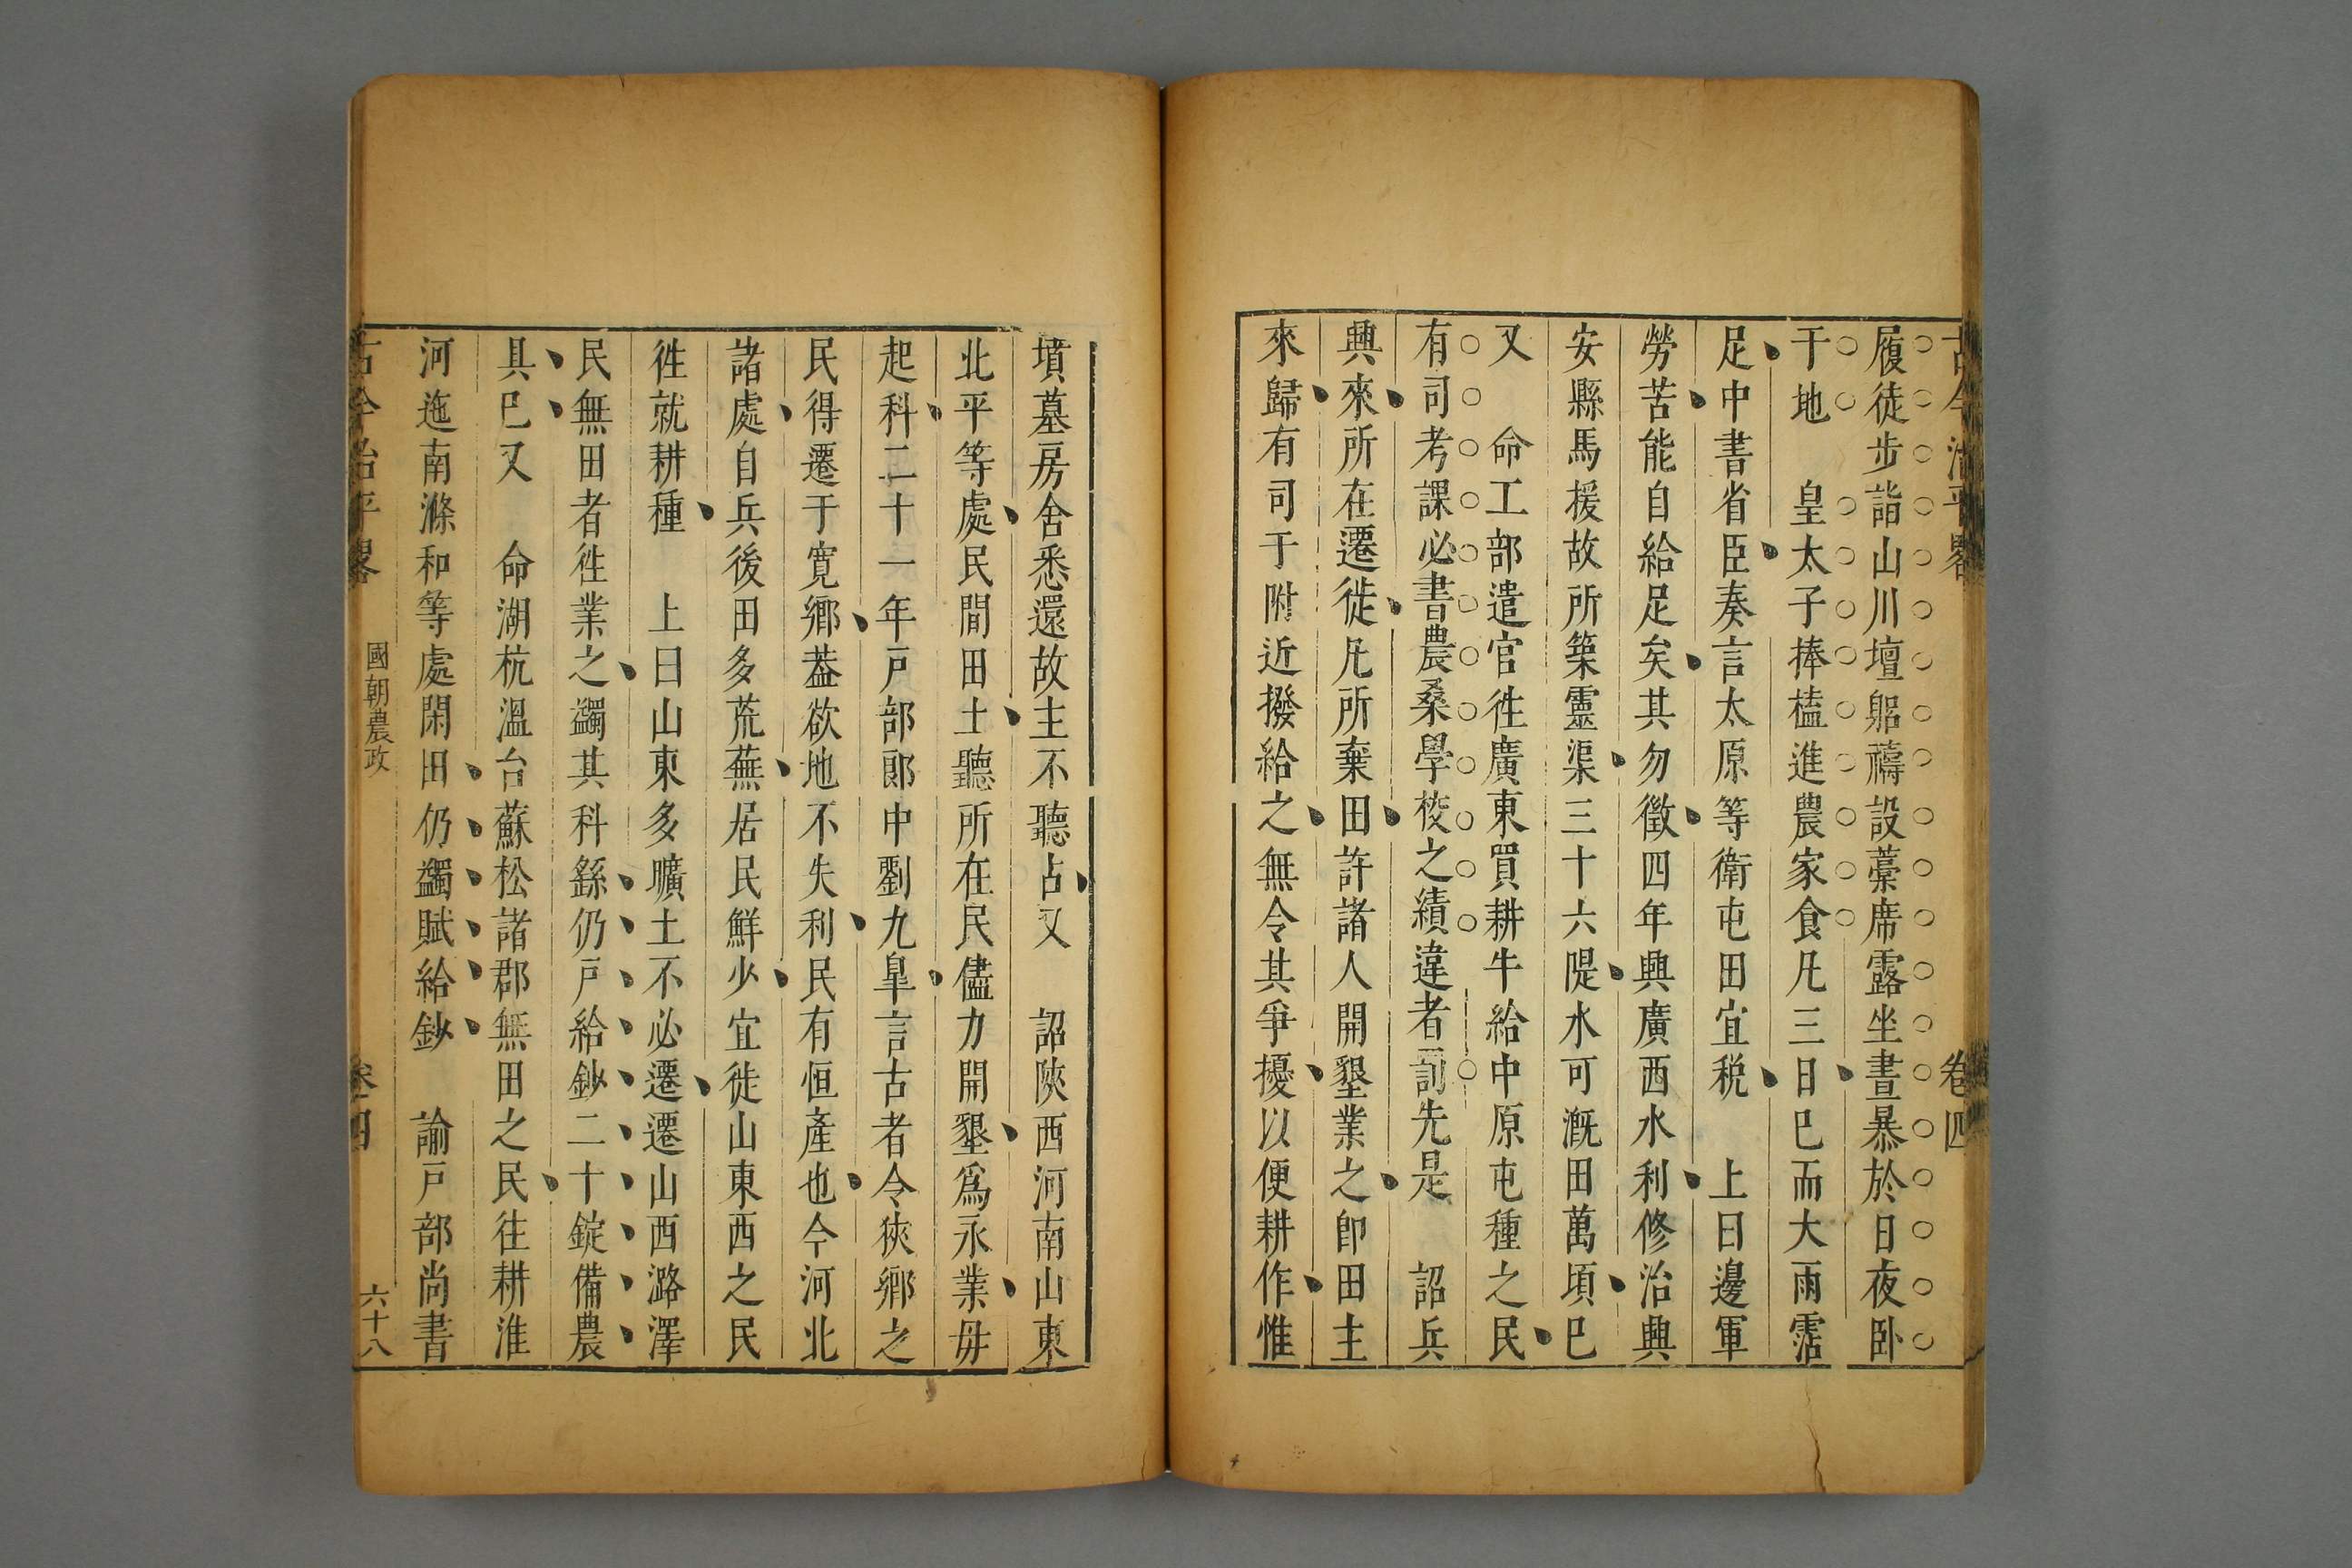 古今治平畧 卷四
履徒步詣山川壇躬禱設藁席露坐晝暴於日夜卧
于地 皇太子捧榼進農家食凡三日巳而大雨霑
足中書省臣奏言太原等衛屯田宜税 上曰邊軍
勞苦能自給足矣其勿徵四年興廣西水利修治興
安縣馬援故所築靈渠三十六隄水可漑田萬頃巳
又 命工部遣官徃廣東買耕牛給中原屯種之民
有司考課必書農桑學校之績違者罰先是 詔兵
興來所在遷徙凡所棄田許諸人開墾業之卽田主
來歸有司于附近撥給之無令其爭擾以便耕作惟
墳墓房舍悉還故主不聽占又 詔陝西河南山東
北平等處民間田土聽所在民儘力開墾爲永業毋
起科二十一年戸部郞中劉九臯言古者令狹鄉之
民得遷于寛鄉葢欲地不失利民有恒產也今河北
諸處自兵後田多荒蕪居民鮮少宜徙山東西之民
徃就耕種 上曰山東多曠土不必遷遷山西潞澤
民無田者徃業之蠲其科繇仍戸給鈔二十錠備農
具巳又 命湖杭溫台蘇松諸郡無田之民往耕淮
河迤南滁和等處閑田仍蠲賦給鈔 諭戸部尚書
古今治平畧 國朝農政 卷四 六十八